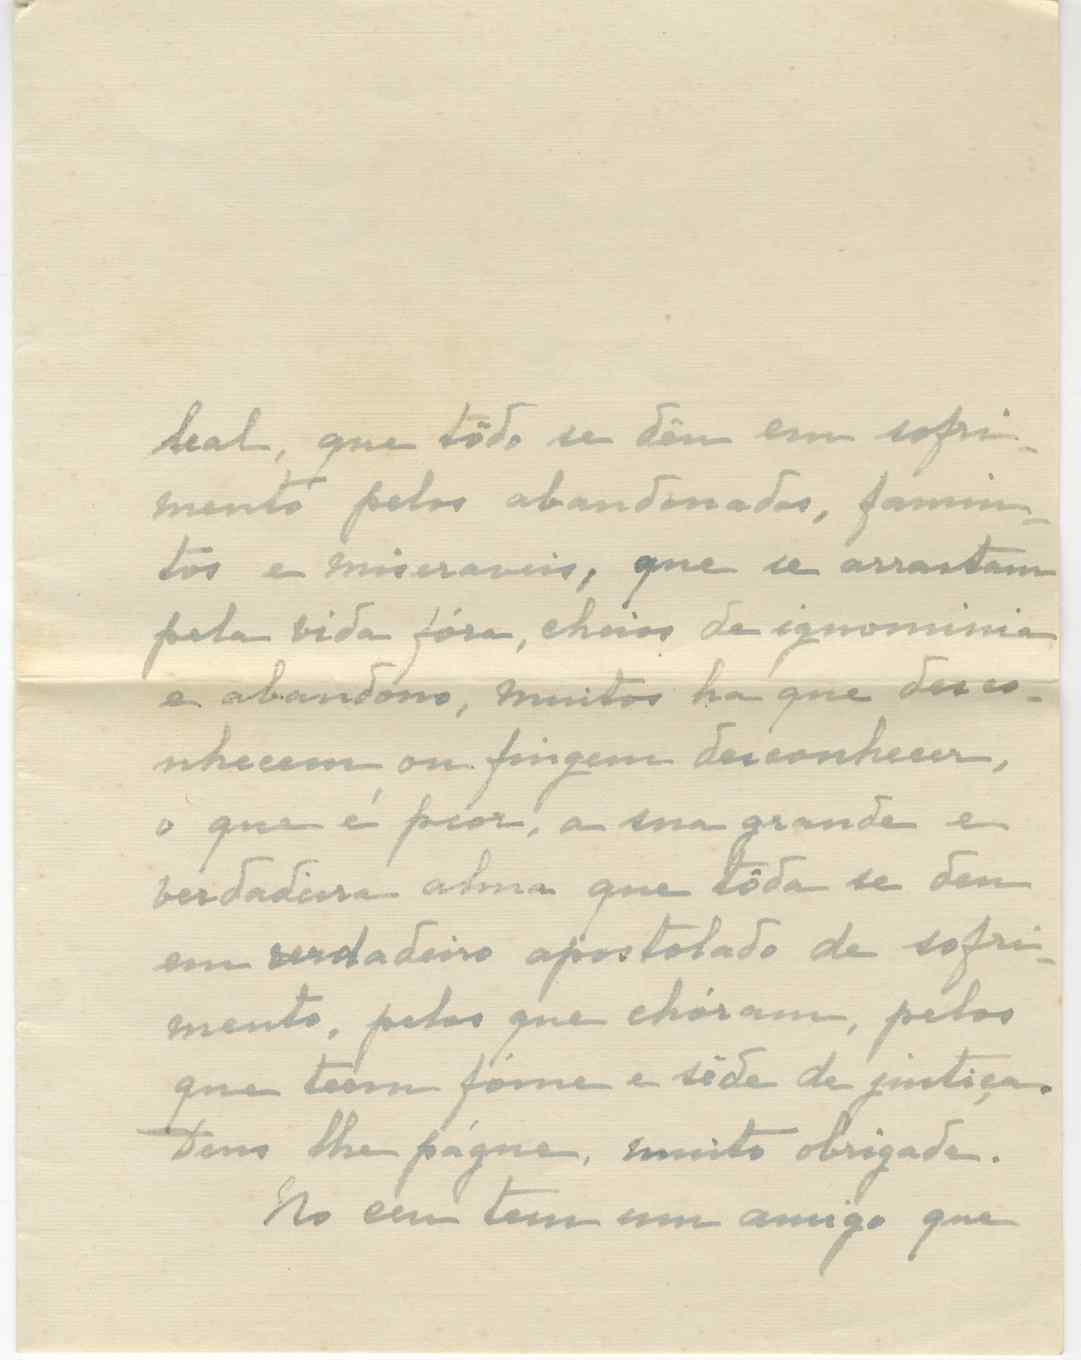 leal, que tôdo se dêu em sofri-
mento pelos abandonados, famin-
tos e miseraveis, que se arrastam
pela vida fóra, cheios de ignominia
e abandono, muitos ha que desco-
nhecem ou fingem desconhecer,
o que é peor, a sua grande e
verdadeira alma que tôda se deu
em verdadeiro apostolado de sofri-
mento, pelos que chóram, pelos
que teem fóme e sêde de justiça.
Deus lhe págue, muito obrigado.
No ceu tem um amigo que